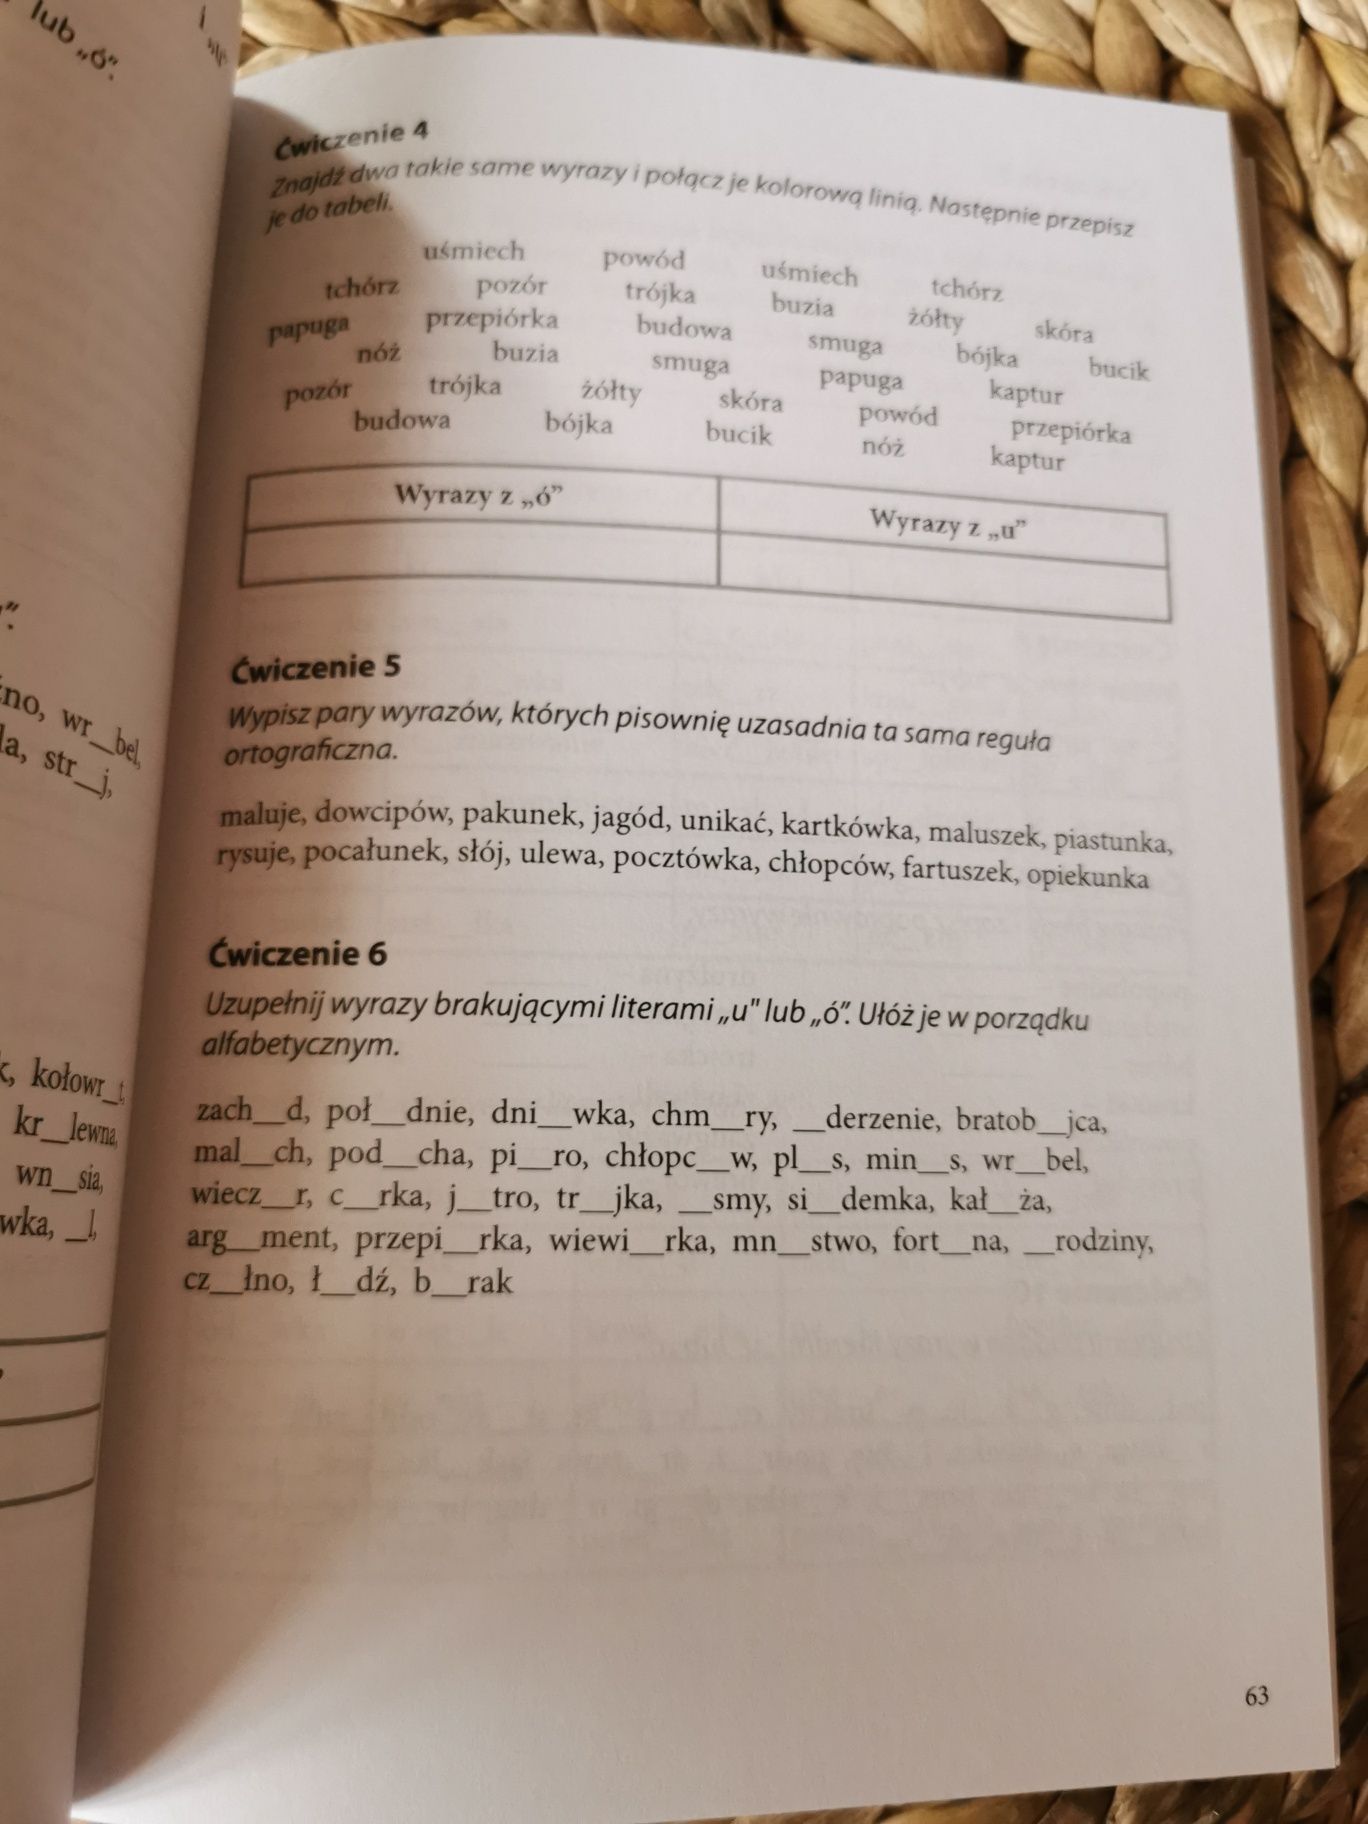 lub „ó".
no, wr__bel,
la, str__j,
kołowr_t,
kr__lewna,
wn__sia,
wka, __l,
Ćwiczenie 4
Znajdź dwa takie same wyrazy i połącz je kolorową linią. Następnie przepisz
je do tabeli.
uśmiech powód uśmiech tchórz
tchórz pozór trójka buzia żółty skóra
papuga przepiórka budowa smuga bójka bucik
nóż buzia smuga papuga kaptur
pozór trójka żółty skóra powód przepiórka
budowa bójka bucik nóż kaptur
Wyrazy z „ó” Wyrazy z „u”
Ćwiczenie 5
Wypisz pary wyrazów, których pisownię uzasadnia ta sama reguła
ortograficzna.
maluje, dowcipów, pakunek, jagód, unikać, kartkówka, maluszek, piastunka,
rysuje, pocałunek, słój, ulewa, pocztówka, chłopców, fartuszek, opiekunka
Ćwiczenie 6
Uzupełnij wyrazy brakującymi literami „u" lub „ó". Ułóż je w porządku
alfabetycznym.
zach__d, poł__dnie, dni__wka, chm__ry, __derzenie, bratob__jca,
mal__ch, pod__cha, pi__ro, chłopc__w, pl__s, min__s, wr__bel,
wiecz__r, c__rka, j__tro, tr__jka, __smy, si__demka, kał__ża,
arg__ment, przepi__rka, wiewi__rka, mn__stwo, fort__na, __rodziny,
cz__łno, ł__dź, b__rak
63